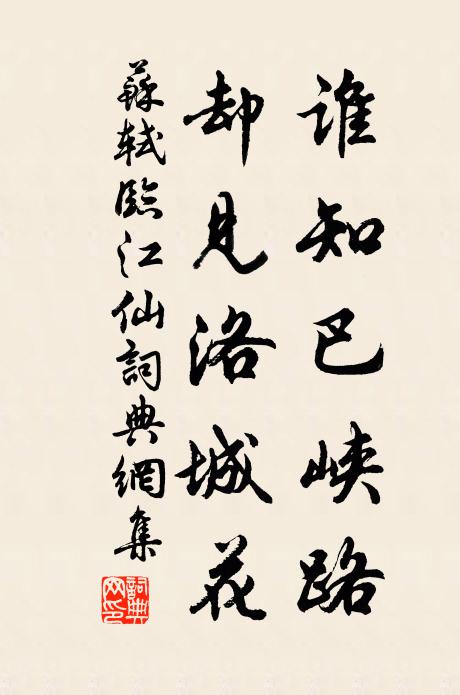 誰知巴峽路
却見洛城花
蘇軾臨江仙詞典網集
詞典网印